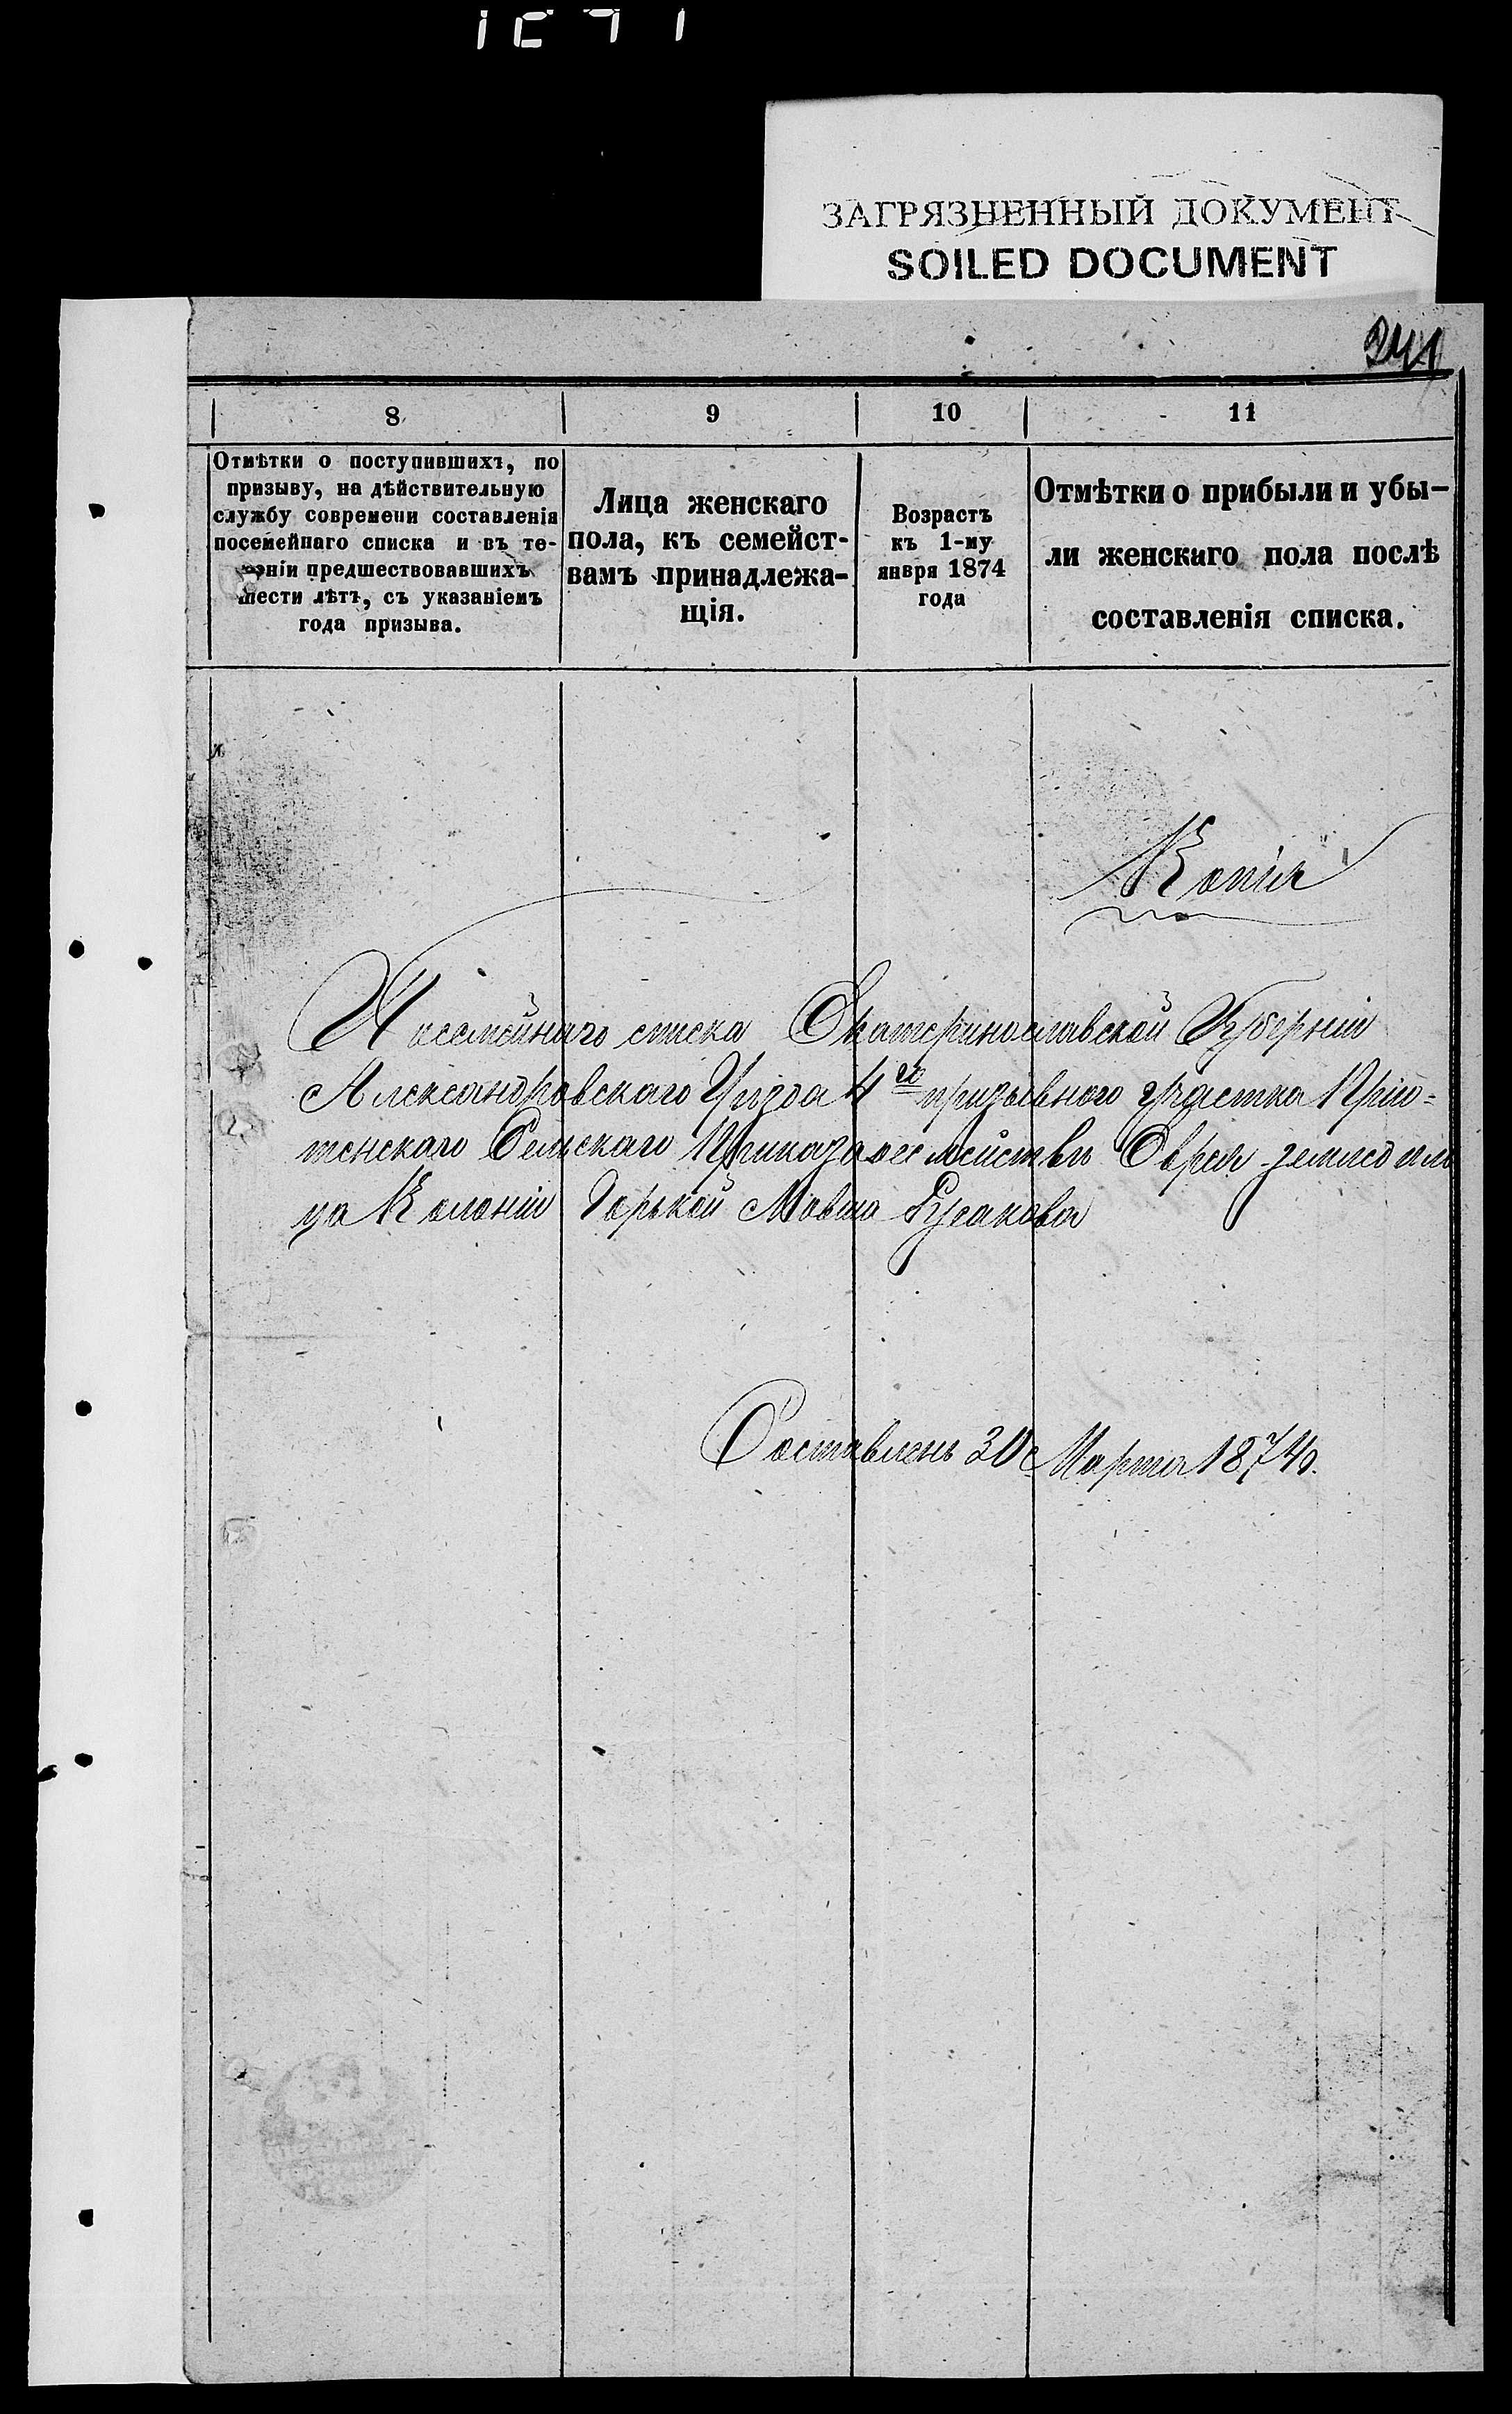 ЗАГРЯЗНЕННЫЙ ДОКУМЕНТ
SOILED DOCUMENT
241
8
9
10
11
Отмѣтки о поступившихъ, по
призыву, на дѣйствительную
службу современи составленія
посемейнаго списка и въ те-
ченіи предшествовавшихъ
шести лѣтъ, съ указаніемъ
года призыва.
Лица женскаго
пола, къ семейст-
вамъ принадлежа-
щія.
Возрастъ
къ 1-му
янвря 1874
года
Отмѣтки о прибыли и убы-
ли женскаго пола послѣ
составленія списка.
Копія
Посемейнаго списка Екатеринославской Губерніи
Александровскаго Уѣзда 4го призывного участка Прію-
тенскаго Сельскаго Приказа о семействѣ Еврея земледѣль
ца Колоніи Горькой Мовша Русакова
Составленъ 30 Марта 1874 г.